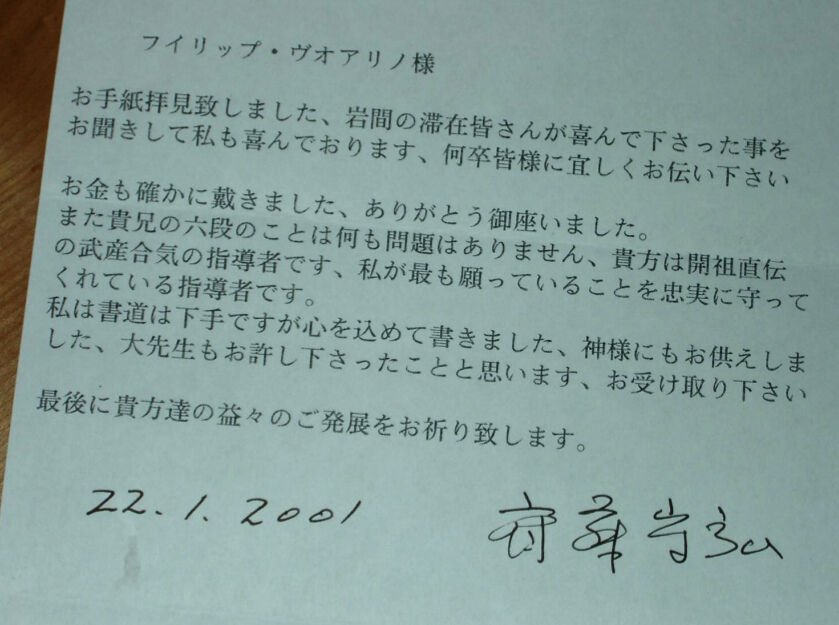 フイリップ・ヴオアリノ様
お手紙拝見致しました、岩間の滞在皆さんが喜んで下さった事を
お聞きして私も喜んでおります、何卒皆様に宜しくお伝い下さい
お金も確かに戴きました、ありがとう御座いました。
また貴兄の六段のことは何も問題はありません、貴方は開祖直伝
の武産合気の指導者です、私が最も願っていることを忠実に守って
くれている指導者です。
私は書道は下手ですが心を込めて書きました、神様にもお供えしま
した、大先生もお許し下さったことと思います、お受け取り下さい
最後に貴方達の益々のご発展をお祈り致します。
22.1.2001
齊藤守弘